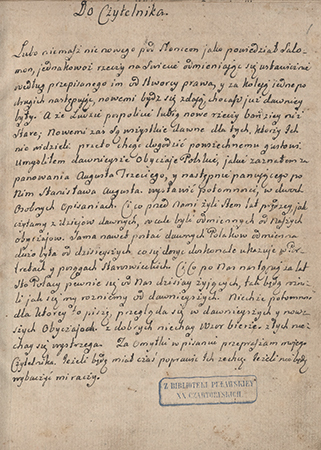 Do Czytelnika.
1
Lubo niemasz nic nowego pod słońcem jako powiedział Salo-
mon, jednakowoż rzeczy na świecie odmieniając się ustawicznie
według przepisanego im od stworcy prawa, y za koleją jedne po
drugich następując, nowemi bydz się zdają, chociasz już dawniej
były. A że ludzie pospolicie lubią nowe rzeczy bardziej niż
stare; Nowemi zaś są wszystkie dawne dla tych, którzy ich
nie widzieli: przeto chcąc dogodzić powszechnemu gustowi
umyśliłem dawniejsze Obyczaje Polskie, jakie zaznałem za
panowania Augusta Trzeciego, y następnie panującego po
Nim Stanisława Augusta wystawić potomności, w dwoch
osobnych Opisaniach. I co przed Nami żyli stem lat prędzej jak
czytamy z dziejow dawnych, wcale byli odmiennych od Naszych
obyczajow. Sama nawet postać dawnych Polakow odmienna
dużo była od dzisiejszych, co się dosyć dokładnie ukazuje w Por-
tretach y posągach Staroświeckich. Ci co po Nas nastąpią za lat
sto Polacy pewnie się od Nas dzisiaj żyjących, tak będą róźni-
li jak się my rożniemy od dawniejszych. Niechże potomność
dla ktorej to piszę, przegląda się w dawniejszych y now-
szych Obyczajach z dobrych niechaj wzor bierze, złych nie-
chaj się wystrzega. Za omyłki w pisaniu przepraszam mojego
Czytelnika. Jeżeli będę miał czas poprawić ich zechcę. Jeżeli nie będę
wybaczyć mi raczy.
Z BIBLIOTEKI PUŁAWSKIEY
XX CZARTORYSKICH.